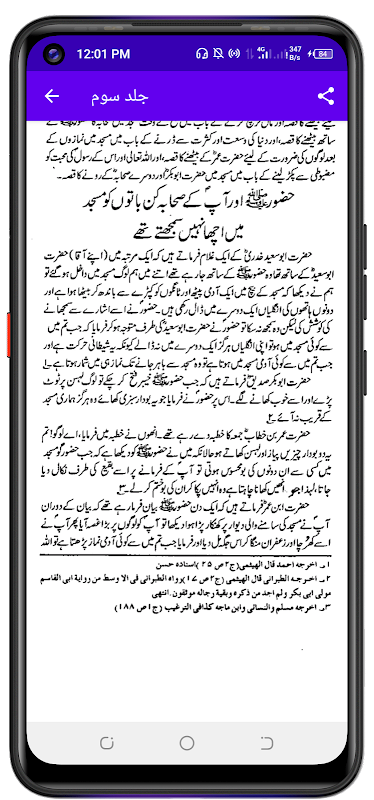 12:01 PM 4G 347 B/s 84
جلد سوم
ساتھ بیٹھنے کا قصہ، اور دنیا کی وسعت اور کثرت سے ڈرنے کے باب میں حضرت عمرؓ کا مسجد میں نمازوں کے
بعد لوگوں کی ضرورت کے لیئے بیٹھنے کا قصہ، اور اللہ تعالیٰ اور اس کے رسول کی محبت کو
مضبوطی سے پکڑ لینے کے باب میں مسجد میں حضرت ابوبکرؓ اور دوسرے صحابہؓ کے رونے کا قصہ۔
حضور ﷺ اور آپؐ کے صحابہ کن باتوں کو مسجد
میں اچھا نہیں سمجھتے تھے
حضرت ابو سعید خدریؓ کے ایک غلام فرماتے ہیں کہ ایک مرتبہ میں (اپنے آقا) حضرت
ابو سعیدؓ کے ساتھ تھا وہ حضور ﷺ کے ساتھ جا رہے تھے اتنے میں ہم لوگ مسجد میں داخل ہو گئے تو
ہم نے دیکھا کہ مسجد کے بیچ میں ایک آدمی پیٹھ اور ٹانگوں کو کپڑے سے باندھ کر بیٹھا ہوا ہے اور
دونوں ہاتھوں کی انگلیاں ایک دوسرے میں ڈال رکھی ہیں۔ حضورؐ نے اسے اشارے سے سمجھانے
کی کوشش کی لیکن وہ سمجھ نہ سکا تو حضورؐ نے حضرت ابو سعیدؓ کی طرف متوجہ ہو کر فرمایا کہ جب تم میں
سے کوئی مسجد میں ہو تو اپنی انگلیاں ہرگز ایک دوسرے میں نہ ڈالے کیونکہ یہ شیطانی حرکت ہے اور
جب تم میں سے کوئی آدمی مسجد میں ہوتا ہے تو وہ مسجد سے باہر جانے تک نماز ہی میں شمار ہوتا ہے۔ ۱؎
حضرت ابوبکر صدیقؓ فرماتے ہیں کہ جب حضور ﷺ خیبر فتح کر چکے تو لوگ لہسن پر ٹوٹ
پڑے اور اسے خوب کھانے لگے۔ اس پر حضورؐ نے فرمایا جو یہ بودار سبزی کھائے وہ ہرگز ہماری مسجد
کے قریب نہ آئے۔ ۲؎
حضرت عمر بن خطابؓ جمعہ کا خطبہ دے رہے تھے۔ انھوں نے خطبہ میں فرمایا، اے لوگو! تم
یہ دو بودار چیزیں پیاز اور لہسن کھاتے ہو حالانکہ میں نے حضور ﷺ کو دیکھا ہے کہ جب حضورؐ کو مسجد
میں کسی سے ان دونوں کی بو محسوس ہوتی تو آپؐ کے فرمانے پر اسے بقیع کی طرف نکال دیا
جاتا، لہٰذا جو انھیں کھانا چاہتا ہے وہ انہیں پکا کر ان کی بو ختم کر لے۔ ۳؎
حضرت ابن عمرؓ فرماتے ہیں کہ ایک دن حضور ﷺ بیان فرما رہے تھے کہ بیان کے دوران
آپؐ نے مسجد کی سامنے والی دیوار پر کھنکار پڑا ہوا دیکھا تو آپؐ کو لوگوں پر بڑا غصہ آیا پھر آپؐ نے
اسے کھرچا اور زعفران منگا کر اس جگہ مل دیا اور فرمایا جب تم میں سے کوئی آدمی نماز پڑھتا ہے تو اللہ
۱۔ اخرجه احمد قال الهيثمي (ج ۲ ص ۲۵) اسناده حسن
۲۔ اخرجه الطبراني قال الهيثمي (ج ۲ ص ۱۷) رواه الطبراني في الا وسط من رواية ابي القاسم
مولى ابي بكر ولم اجد من ذكره وبقية رجاله موثقون. انتهى
۳۔ اخرجه مسلم والنسائى وابن ماجه كذافى الترغيب (ج ۱ ص ۱۸۸)